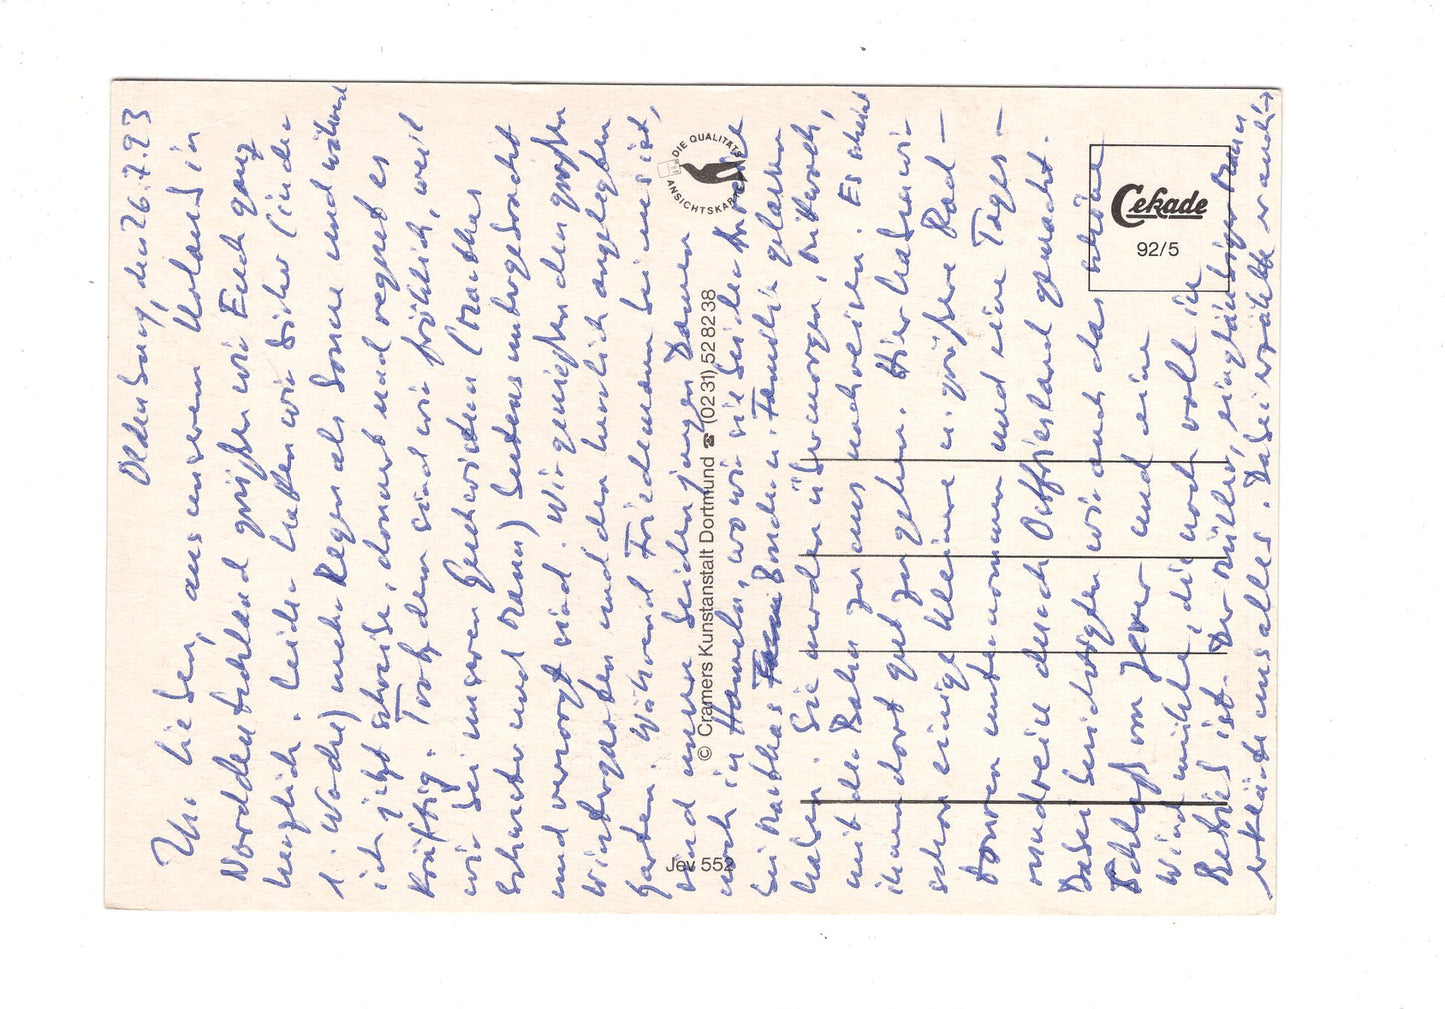 Oldenburg, den 26.7.93
Ihr Lieben, aus unserem Urlaub in
Norddeutschland grüßen wir Euch ganz
herzlich. Leider hatten wir bisher (in der
1. Woche) mehr Regen als Sonne und während
ich jetzt schreibe, donnert und regnet es
kräftig. Trotzdem sind wir fröhlich, weil
wir bei unseren Geschwistern (
Schwester und Mann) bestens untergebracht
und versorgt sind. Wir genießen den großen
Wintergarten und den herrlich angelegten
Garten. Während Friedemann bei uns ist,
sind unsere beiden jungen Damen
noch in Hameln, wo wir sie beide
bei Bruder u. Familie gelassen
haben. Sie werden übermorgen, Mittwoch,
mit der Bahn zu uns nachreisen. Es scheint
ihnen dort gut zu gehen. Hier haben wir
schon einige kleinere u. größere Rad-
touren unternommen und eine Tages-
rundreise durch Ostfriesland gemacht.
Dabei besichtigten wir auch das schöne
Schloß von Jever und eine
Windmühle, die noch voll in
Betrieb ist. Der Müller, ein gläubiger Mann,
erklärte uns alles. Dabei erzählte er auch
DIE QUALITÄTS
ANSICHTSKARTE
© Cramers Kunstanstalt Dortmund ☎ (0231) 528238
Jev 552
Cekade
92/5